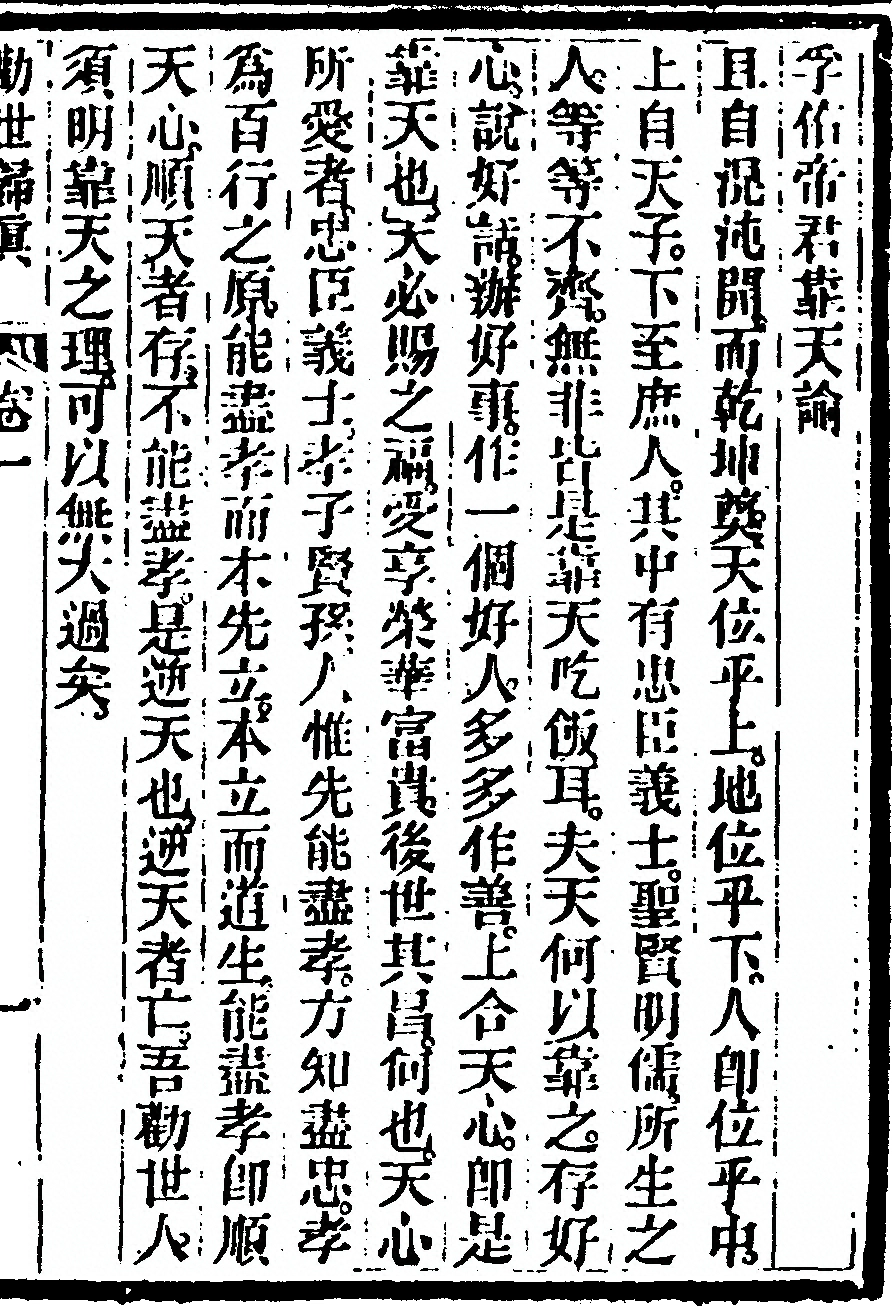 孚佑帝君靠天論
且自混沌開。而乾坤奠。天位乎上。地位乎下。人卽位乎中。
上自天子。下至庶人。其中有忠臣義士。聖賢明儒。所生之
人。等等不齊。無非皆是靠天吃飯耳。夫天何以靠之。存好
心。說好話。辦好事。作一個好人。多多作善。上合天心。卽是
靠天也。天必賜之福。受享榮華富貴。後世其昌。何也。天心
所愛者。忠臣義士。孝子賢孫。人惟先能盡孝。方知盡忠。孝
爲百行之原。能盡孝而本先立。本立而道生。能盡孝卽順
天心。順天者存。不能盡孝。是逆天也。逆天者亡。吾勸世人。
須明靠天之理。可以無大過矣。
勸世歸眞 卷一 一